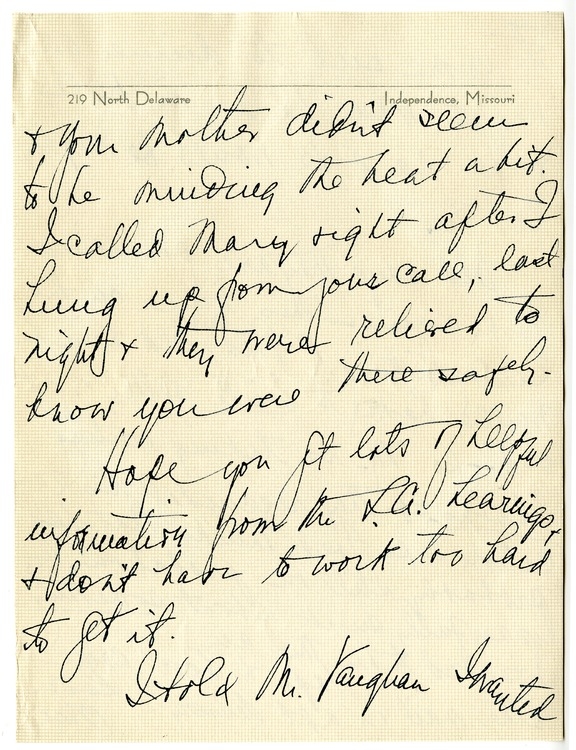 219 North Delaware Independence, Missouri
& your mother didn't seem
to be minding the heat a bit.
I called Mary right after I
hung up from your call, last
night & they were relieved to
know you were there safely.
Hope you get lots of helpful
information from the L.A. hearings,
& don't have to work too hard
to get it.
I told Mr. Vaughan I wanted